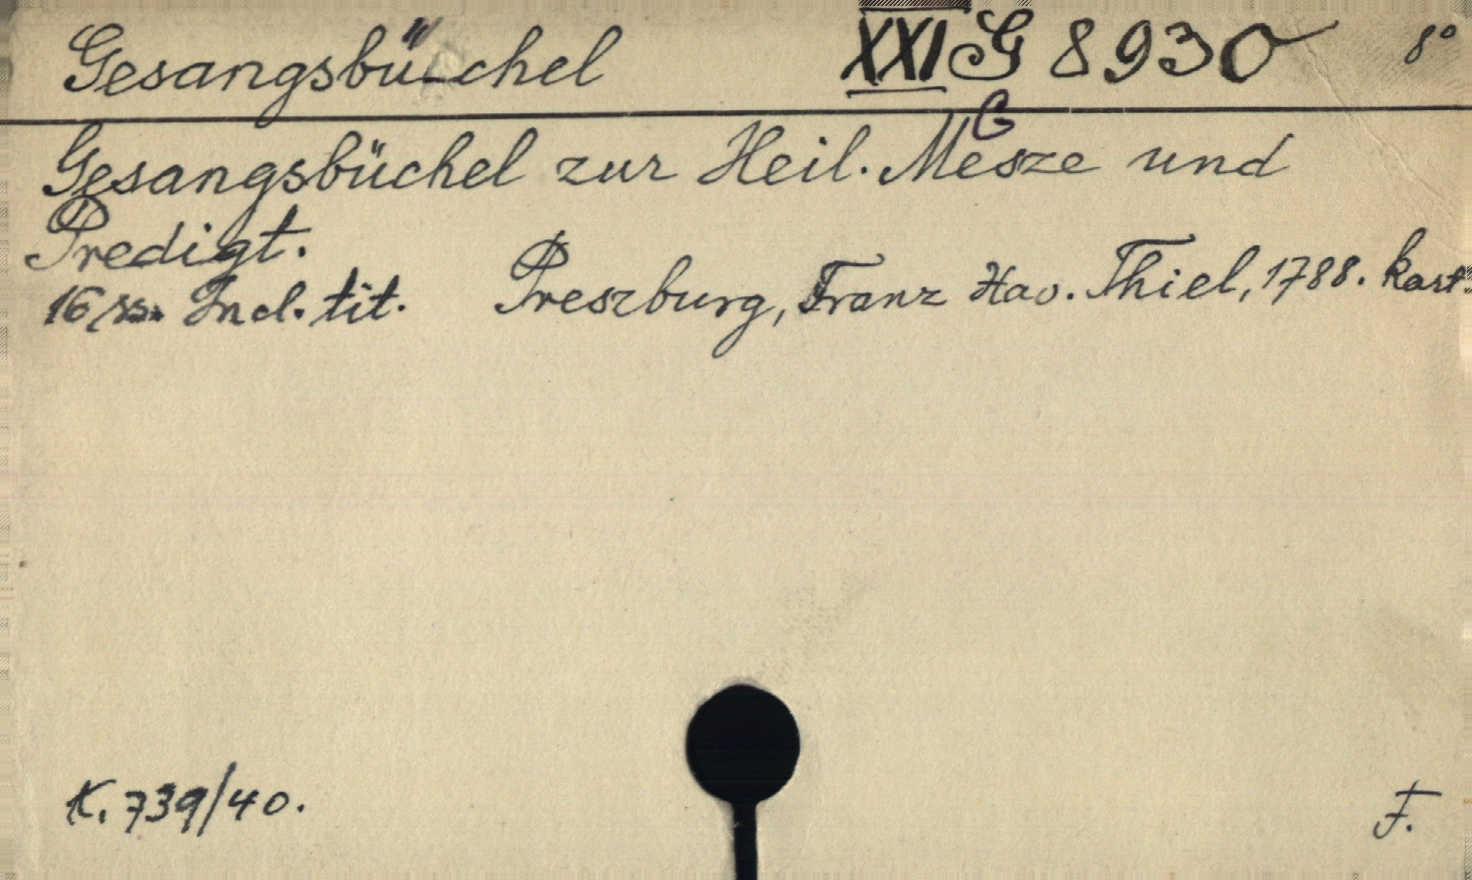 Gesangsbü-chel XXI G 8930 8°
G
Gesangsbüchel zur Heil. Mesze und
Predigt.
16 ss. Incl. tit. Preszburg, Franz Hav. Thiel, 1788. kart.
K. 739/40. F.